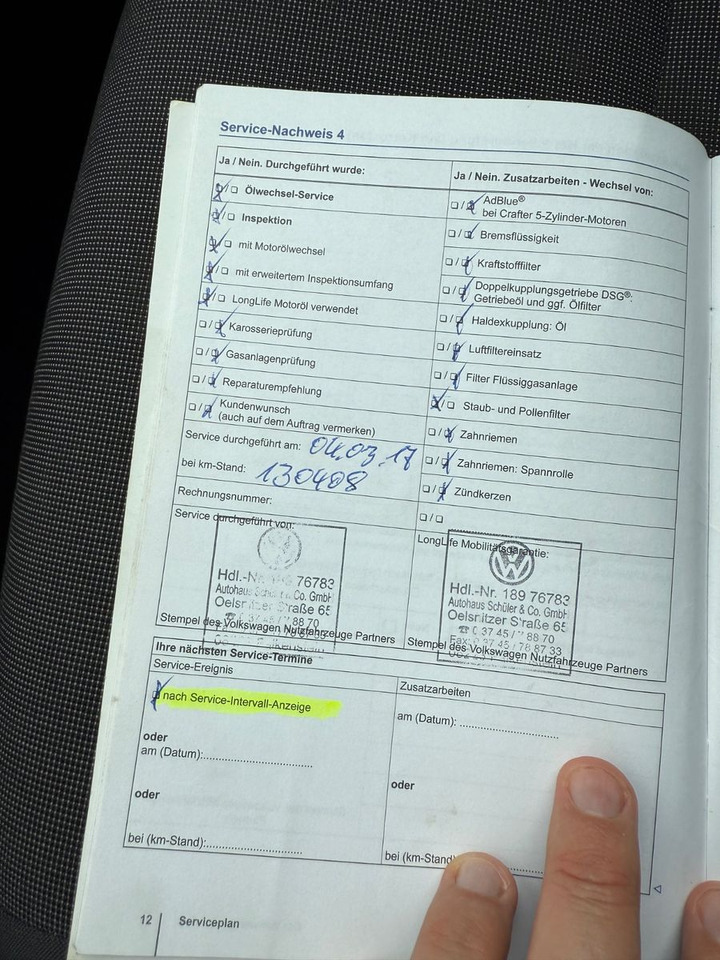 Service-Nachweis 4
Ja / Nein. Durchgeführt wurde:
Ölwechsel-Service
Inspektion
mit Motorölwechsel
mit erweitertem Inspektionsumfang
LongLife Motoröl verwendet
Karosserieprüfung
Gasanlagenprüfung
Reparaturempfehlung
Kundenwunsch
(auch auf dem Auftrag vermerken)
Service durchgeführt am: 04.03.17
bei km-Stand: 130408
Rechnungsnummer:
Service durchgeführt von:
Hdl.-Nr. 76783
Autohaus Schüler & Co. GmbH
Oelsnitzer Straße 65
Stempel des Volkswagen Nutzfahrzeuge Partners
Ja / Nein. Zusatzarbeiten - Wechsel von:
AdBlue®
bei Crafter 5-Zylinder-Motoren
Bremsflüssigkeit
Kraftstofffilter
Doppelkupplungsgetriebe DSG®:
Getriebeöl und ggf. Ölfilter
Haldexkupplung: Öl
Luftfiltereinsatz
Filter Flüssiggasanlage
Staub- und Pollenfilter
Zahnriemen
Zahnriemen: Spannrolle
Zündkerzen
LongLife Mobilitätsgarantie:
Hdl.-Nr. 189 76783
Autohaus Schüler & Co. GmbH
Oelsnitzer Straße 65
☎ 0 37 45 / 88 70
Fax: 0 37 45 / 78 87 33
Stempel des Volkswagen Nutzfahrzeuge Partners
Ihre nächsten Service-Termine
Service-Ereignis
nach Service-Intervall-Anzeige
oder
am (Datum):
oder
bei (km-Stand):
Zusatzarbeiten
am (Datum):
oder
bei (km-Stand)
12 Serviceplan